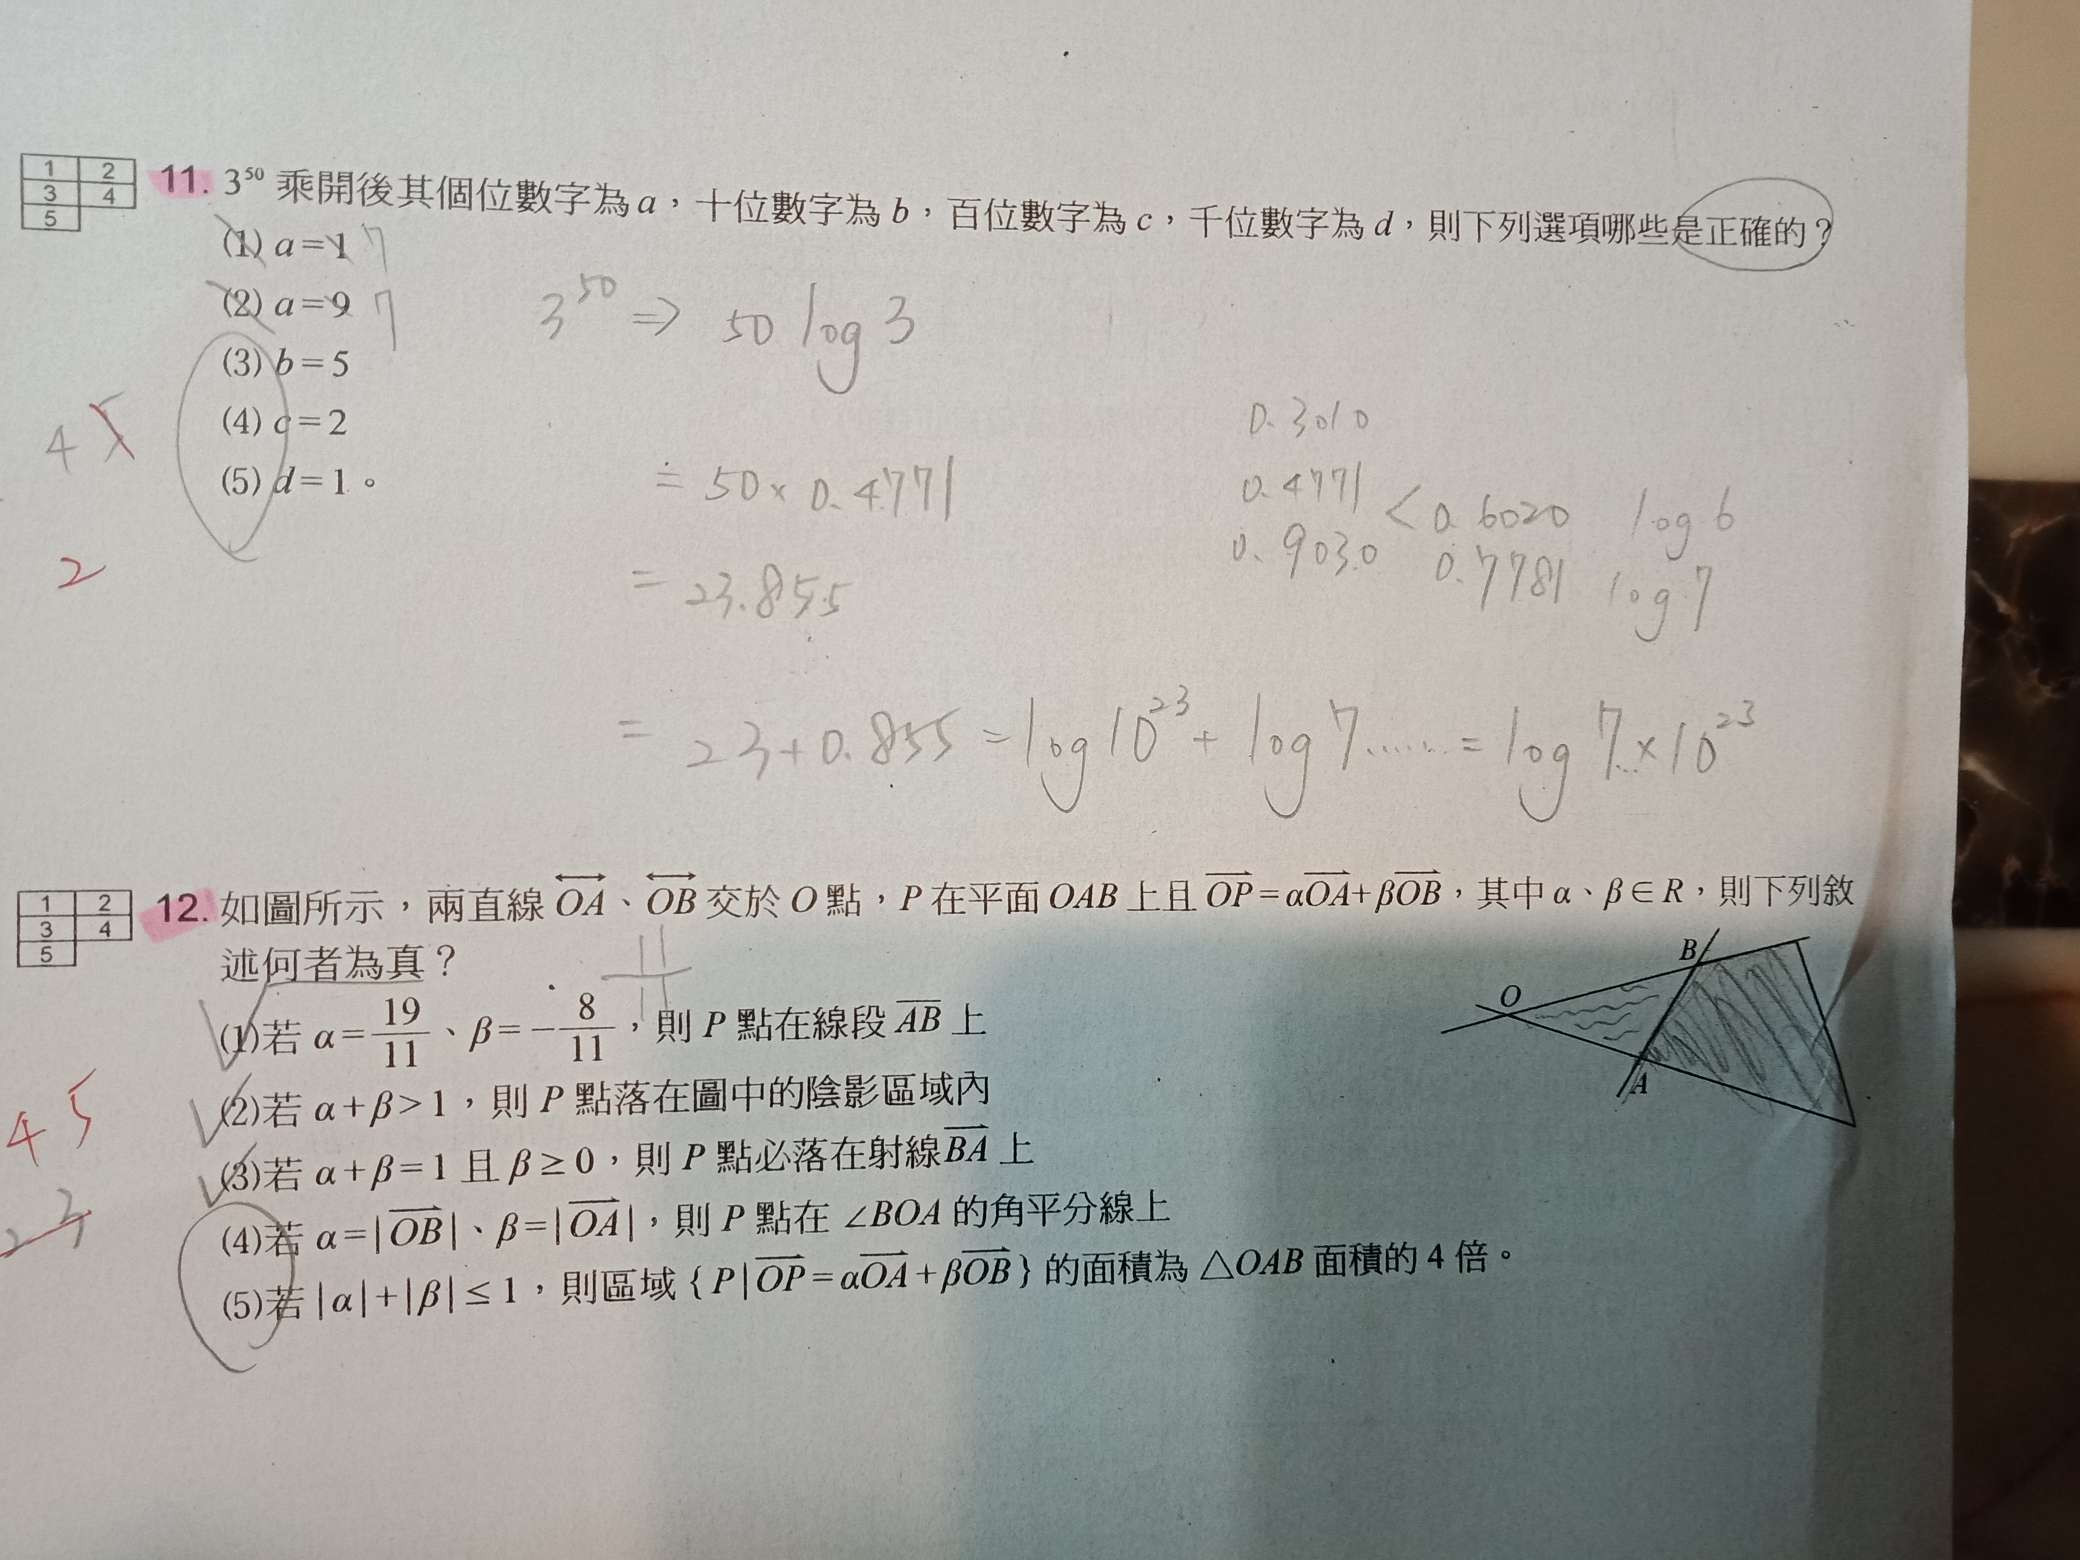 1 2
3 4
5
11. 3⁵⁰ 乘開後其個位數字為 a，十位數字為 b，百位數字為 c，千位數字為 d，則下列選項哪些是正確的？
(1) a=1 7
(2) a=9 7
(3) b=5
(4) c=2
(5) d=1。
3⁵⁰ ⇒ 50 log 3
4 5
2
≐ 50 × 0.4771
= 23.855
0.3010
0.4771 < 0.6020 log 6
0.9030 0.7781 log 7
= 23+0.855 = log 10²³ + log 7...... = log 7...×10²³
1 2
3 4
5
12. 如圖所示，兩直線 OA、OB 交於 O 點，P 在平面 OAB 上且 OP=αOA+βOB，其中 α、β∈R，則下列敘
述何者為真？
11
11
(1)若 α=19/11、β=−8/11，則 P 點在線段 AB 上
(2)若 α+β>1，則 P 點落在圖中的陰影區域內
(3)若 α+β=1 且 β≥0，則 P 點必落在射線BA 上
(4)若 α=|OB|、β=|OA|，則 P 點在 ∠BOA 的角平分線上
(5)若 |α|+|β|≤1，則區域 {P|OP=αOA+βOB} 的面積為 △OAB 面積的 4 倍。
4 5
2 3
B
O
A